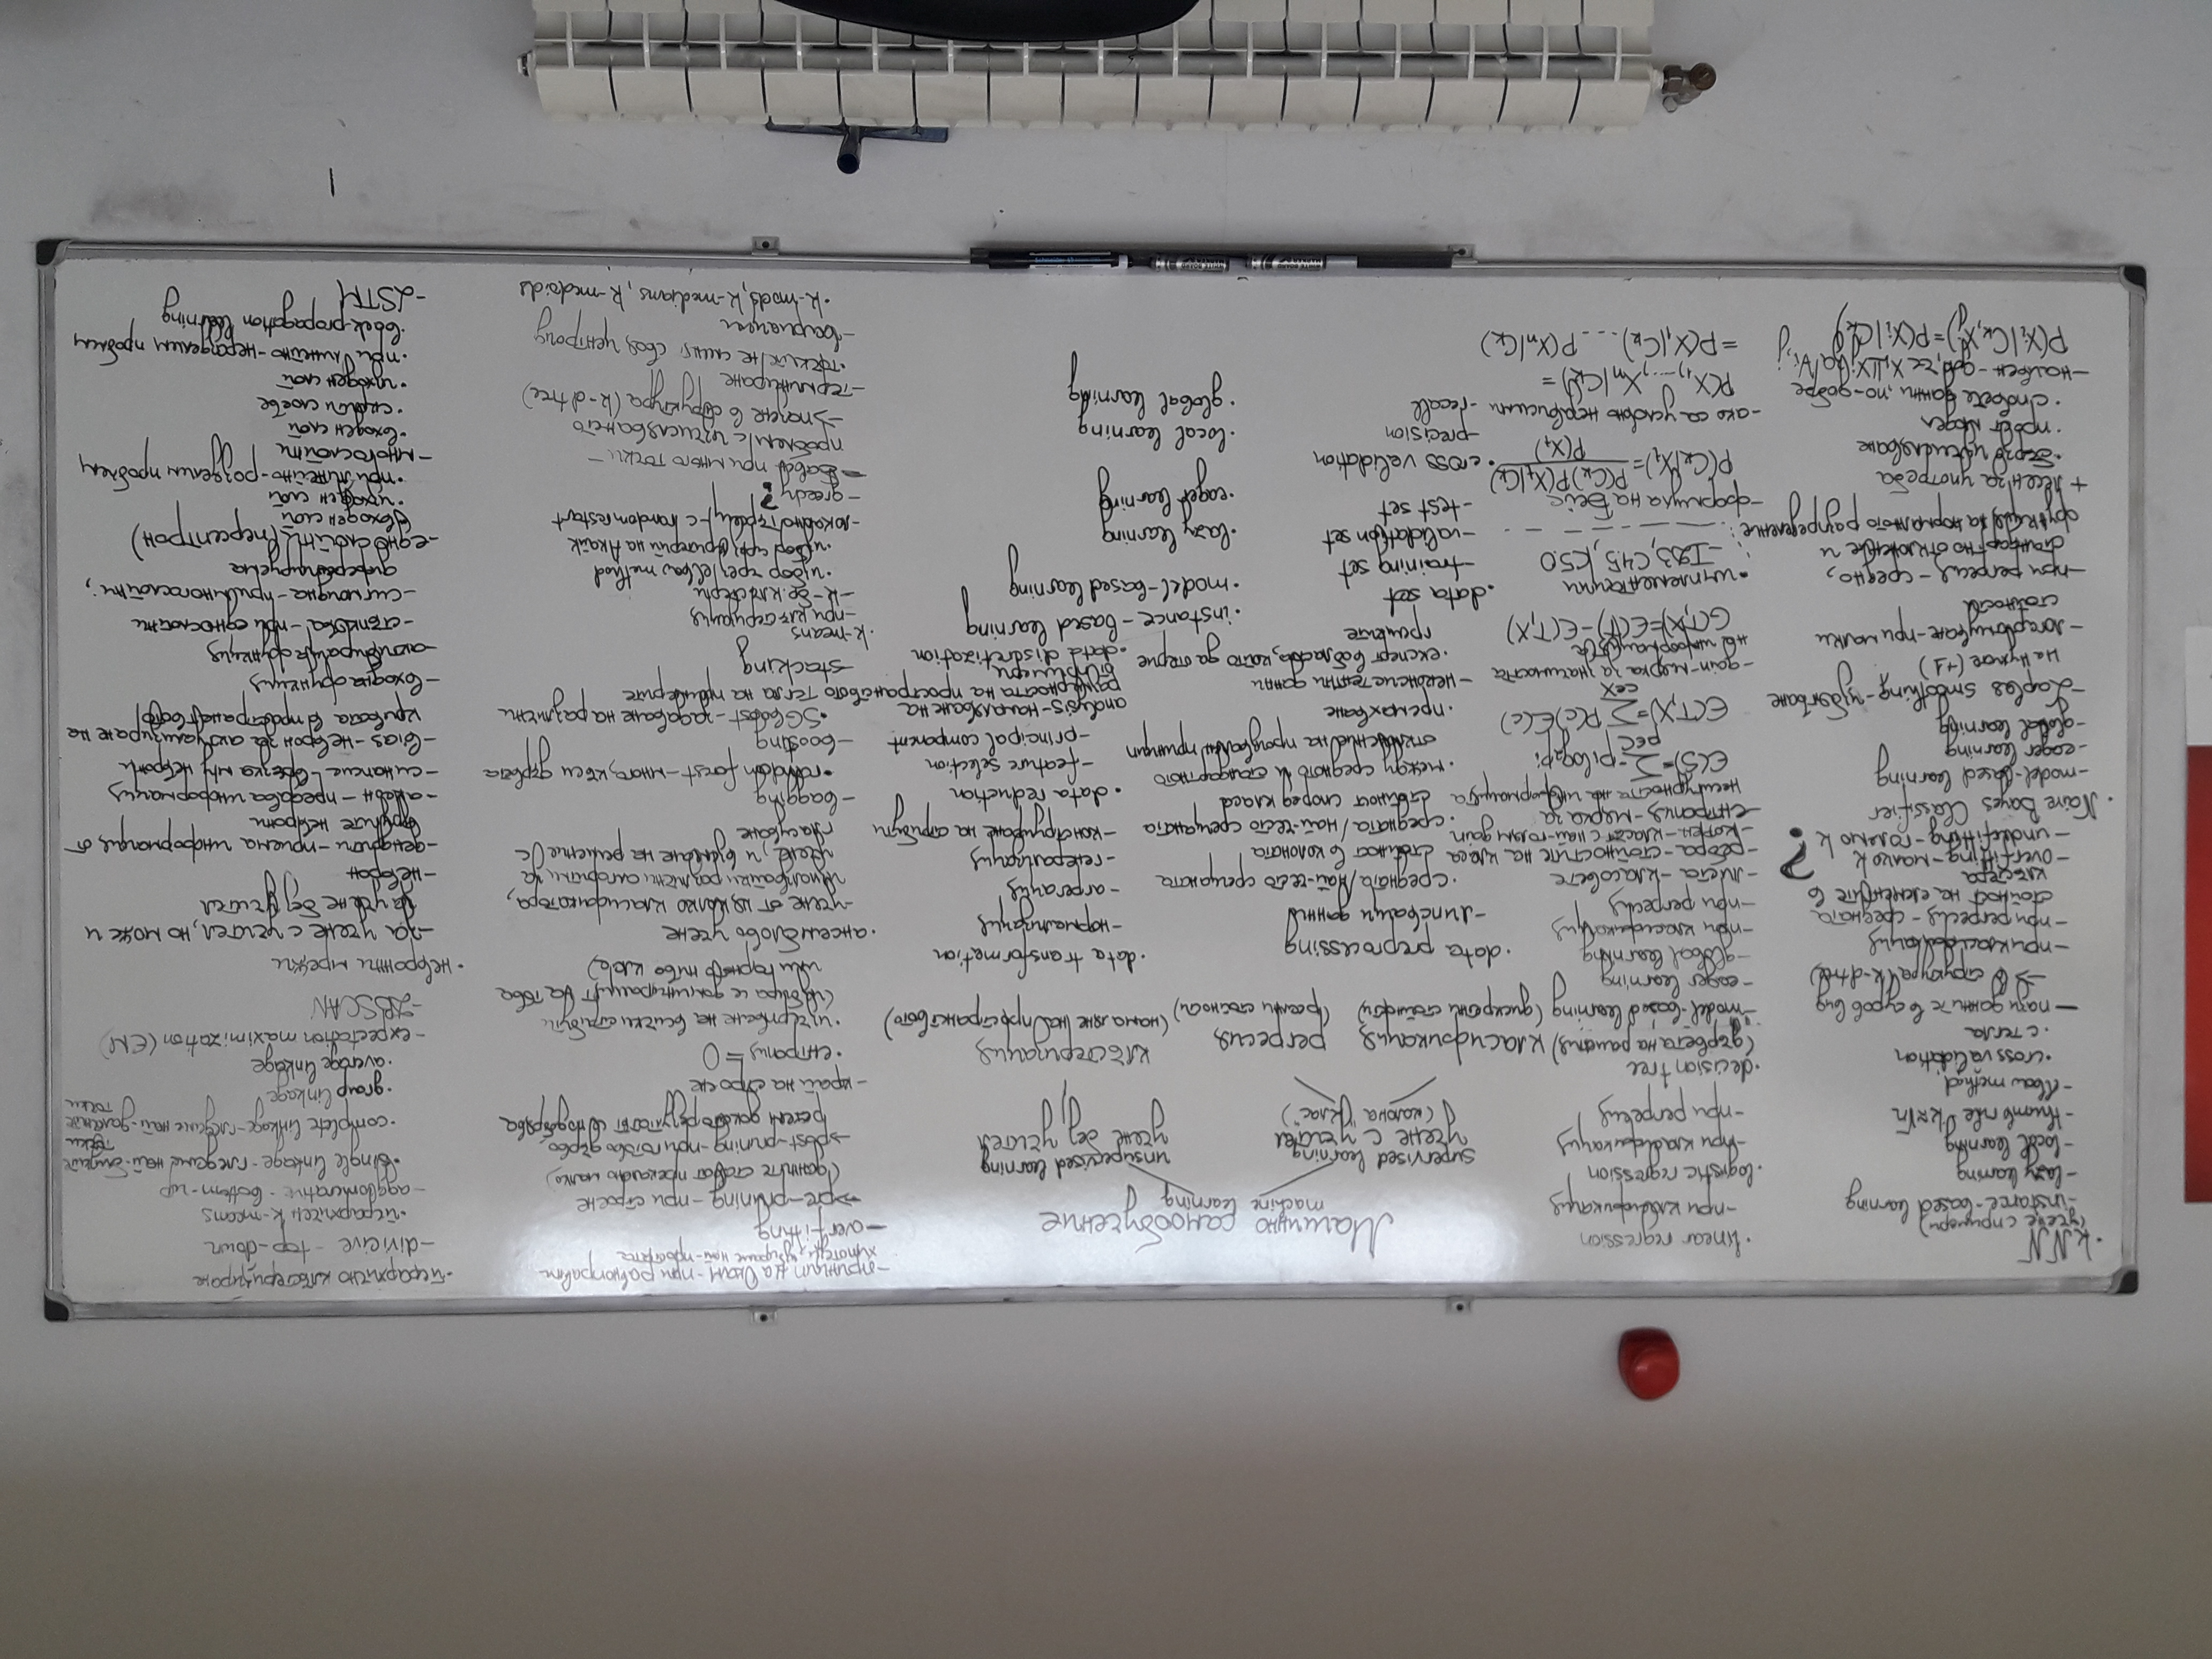 · kNN
(учене с примери)
- instance-based learning
- lazy learning
- local learning
- thumb rule k≈√n
- elbow method
· cross validation
· с тегла
- пази данните в суров вид
→ в структура (k-d tree)
- при класификация
- при регресия - средната
стойност на елементите в
клъстера
- overfitting - малко k
- underfitting - голямо k ?
· Naive Bayes Classifier
- model-based learning
- eager learning
- global learning
- Laplas smoothing - избягване
на нулите (+1)
- логаритмуване - при малки
стойности
- при регресия - средно,
стандартно отклонение и
функция на нормалното разпределение
+ лесен за употреба
· бързо изчисляване
· прост модел
· с повече данни, по-добре
- наивен - доп, че Xi⊥⊥Xj за ∀i,j
P(Xi|Ck,Xj)=P(Xi|Ck)
· linear regression
- при класификация
· logistic regression
- при класификация
- при регресия
· decision tree
(дървета на решения)
- model-based learning
- eager learning
- global learning
- при класификация
- при регресия
- листа - класовете
- ребра - стойностите на класа
- корен - класът с най-голям gain
- ентропия - мярка за
несигурността на информацията
E(S)=∑ -pi log2 pi
p∈C
E(T,X)=∑ P(c)E(c)
c∈X
- gain - мярка за значимостта
на информацията
G(T,X)=E(T)-E(T,X)
· имплементации
- ID3, C4.5, C5.0
- формула на Бейс
P(Ck|Xi)= P(Ck)P(Xi|Ck)
P(Xi)
- ако са условно независими
P(X1,...,Xn|Ck)=
=P(X1|Ck)...P(Xn|Ck)
Машинно самообучение
machine learning
supervised learning
учене с учител
(колона "клас")
unsupervised learning
учене без учител
класификация
(дискретни стойности)
регресия
(реални стойности)
клъстеризация
(намаляне на пространството)
· data preprocessing
- липсващи данни
· средната/най-често срещаната
стойност в колоната
· средната/най-често срещаната
стойност според класа
· между средното и стандартното
отклонение на произволен принцип
· премахване
- неконсистентни данни
· експерт в областта, който да открие
грешките
· data set
- training set
- validation set
- test set
· cross validation
- precision
- recall
· data transformation
- нормализация
- агрегация
- генерализация
- конструиране на атрибути
· data reduction
- feature selection
- principal component
analysis - намаляване на
размерността на пространството
от примери
· data discretization
· instance-based learning
· model-based learning
· lazy learning
· eager learning
· local learning
· global learning
- принцип на Окам - при равноправни
хипотези, избираме най-простата
- overfitting
→ pre-pruning - при строене
(данните стават прекалено малко)
→ post-pruning - при готово дърво,
режем докато резултатът се подобрява
- край на строене
· ентропия = 0
· изчерпване на всички атрибути
(избира се доминиращият на това
или горното ниво клас)
· ансамблово учене
- учене от няколко класификатора,
използвайки различни алгоритми за
учене, и вземане на решение с
гласуване
- bagging
· random forest - много, къси дървета
- boosting
· SGboost - задаване на различни
тегла на примерите
- stacking
· k-means
- при клъстеризация
- k - бр. клъстери
· избор чрез elbow method
· избор чрез критерий на Акаик
- локално търсене, с random restart
- greedy?
- бавен при много точки -
проблем с изчисляването
→ пазене в структура (k-d tree)
- терминиране
· точките не сменят своя центроид
- вариации
· k-mods, k-medians, k-medoids
· йерархично клъстеризиране
- divicive - top-down
· йерархичен k-means
- agglomerative - bottom-up
· single linkage - гледаме най-близките
точки
· complete linkage - гледаме най-далечните
точки
· group linkage
· average linkage
- expectation maximization (EM)
- DBSCAN
· невронни мрежи
- за учене с учител, но може и
за учене без учител
- неврон
- дендрити - приема информация от
другите неврони
- аксон - предава информация
- синапсис - връзка м/у неврони
- bias - неврон за актуализиране на
кривата в пространството
- входна функция
- активираща функция
- стъпкова - при еднослойни
- сигмоидна - при многослойни;
диференцируема
- еднослойни (персептрон)
· входен слой
· изходен слой
· при линейно-разделим проблем
- многослойни
· входен слой
· скрити слоеве
· изходен слой
· при линейно-неразделим проблем
· back-propagation learning
- LSTM